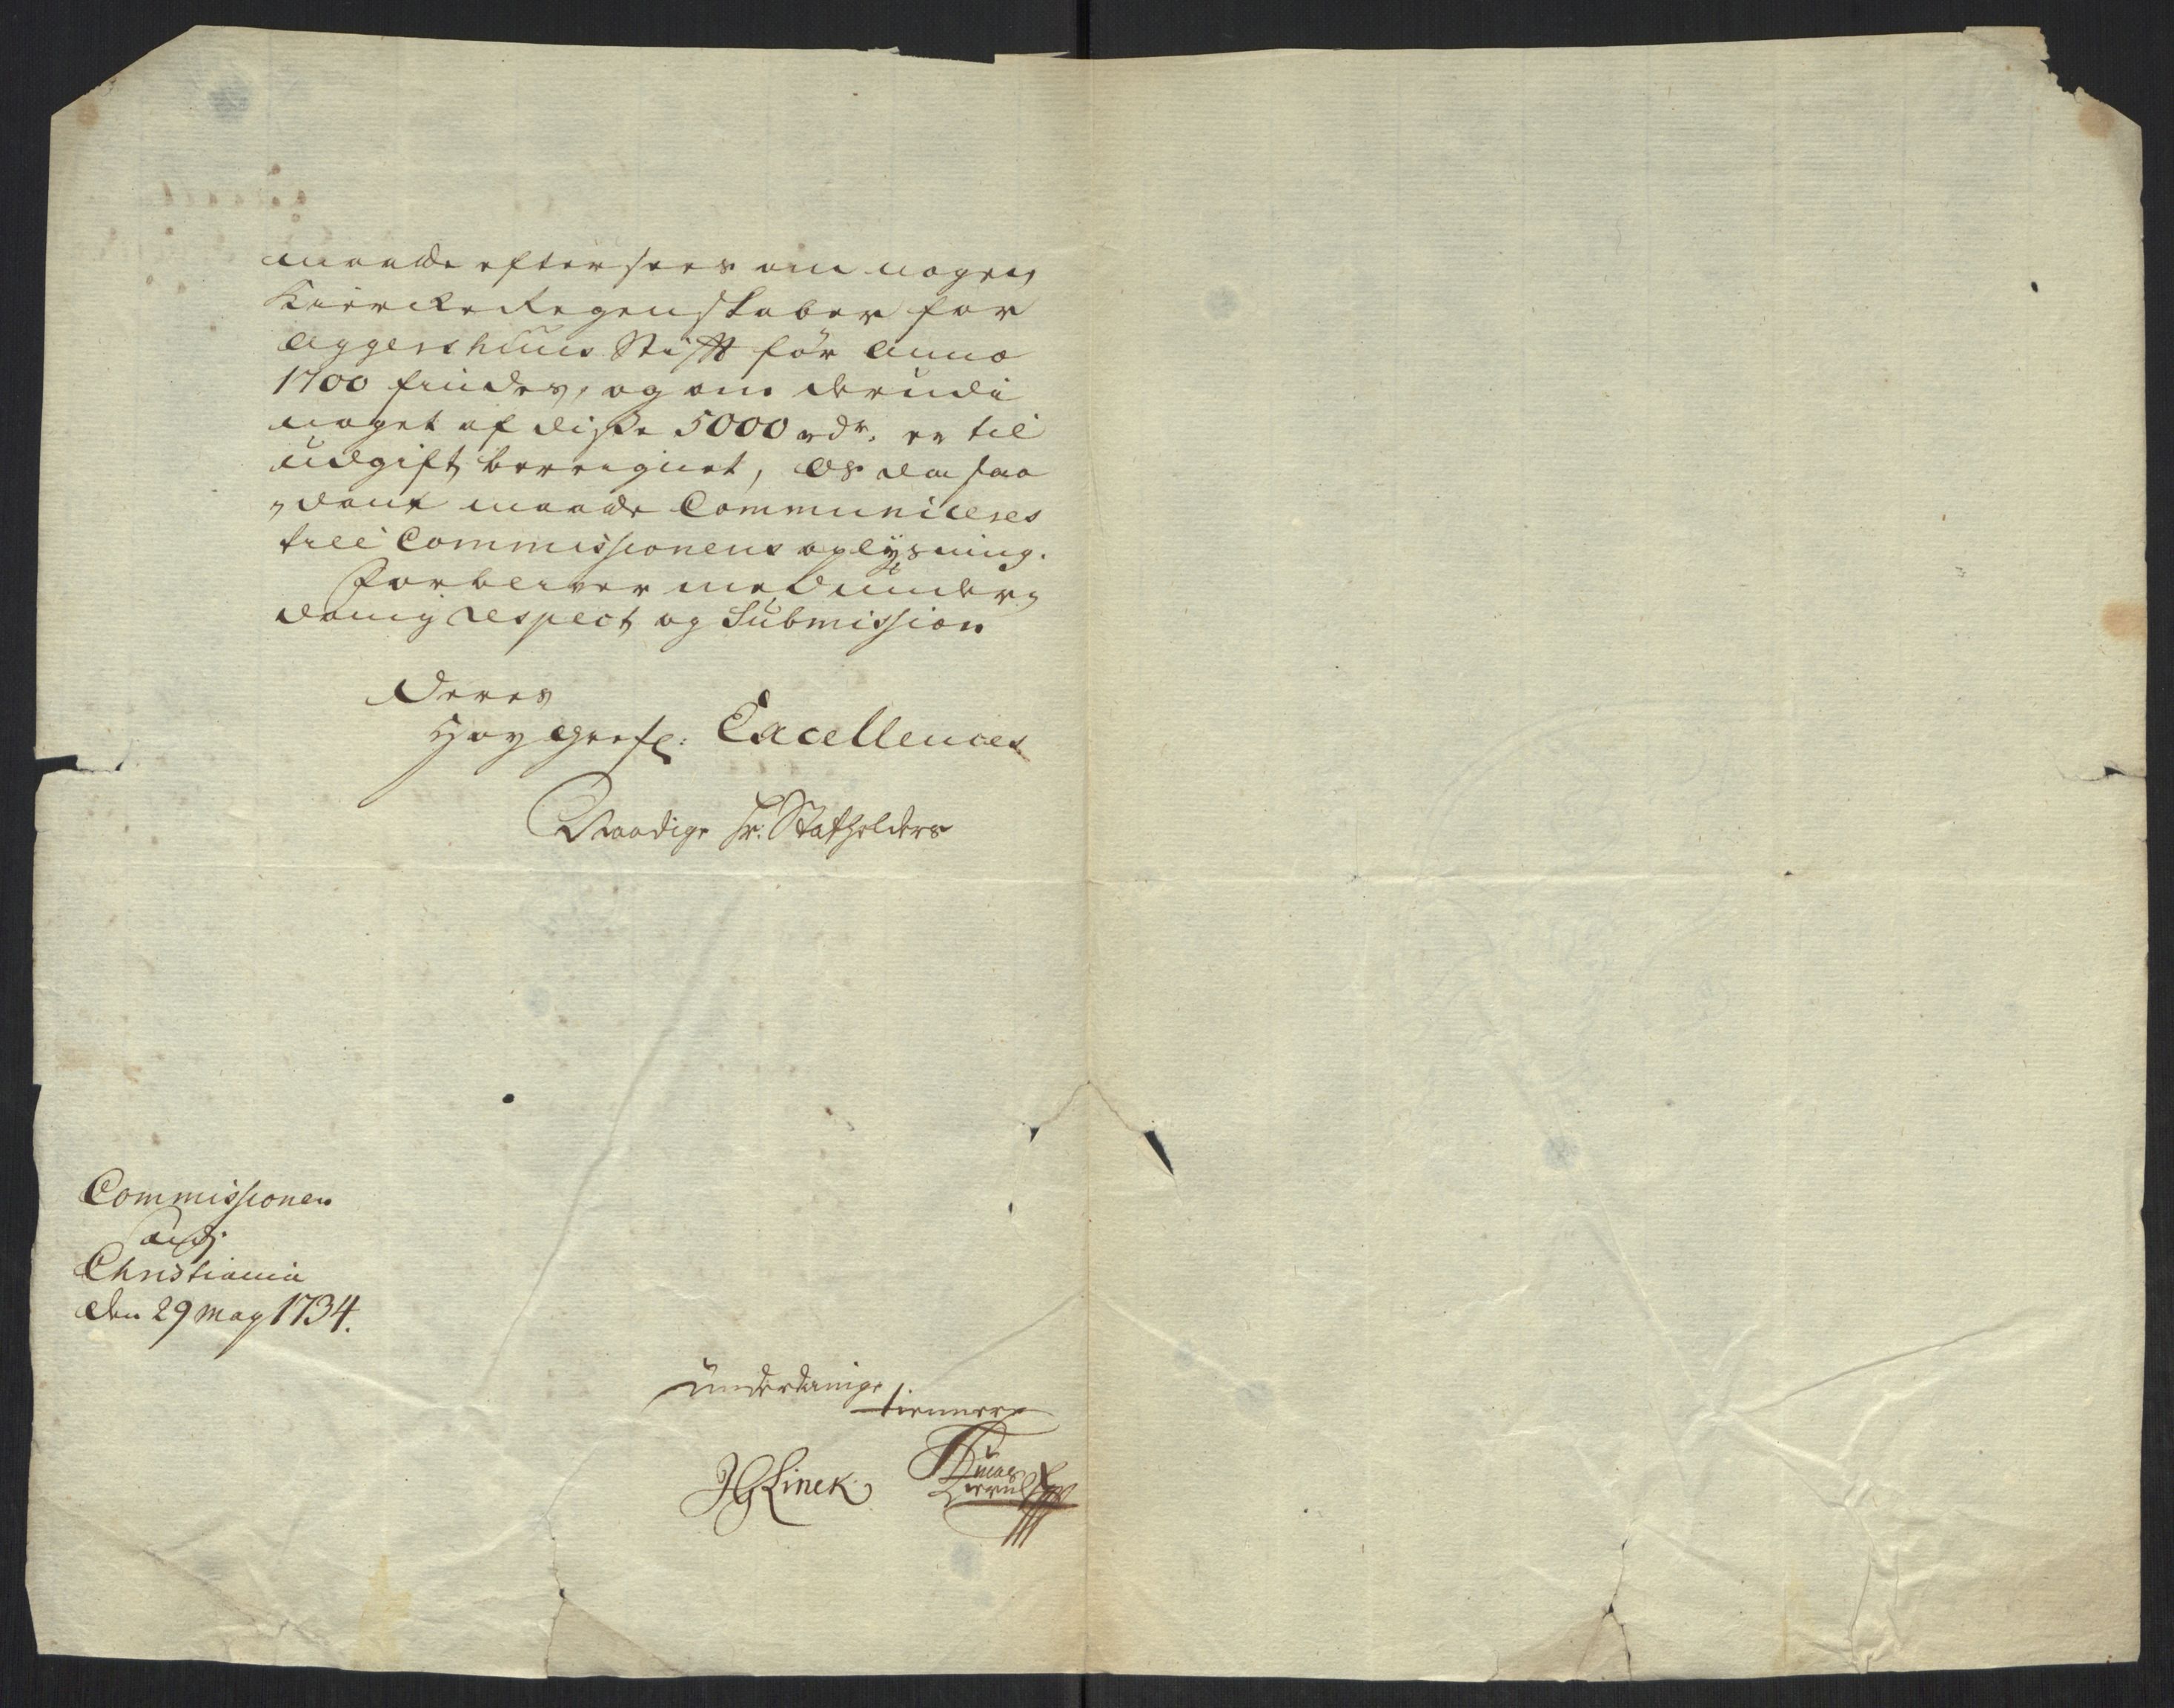 maatte eftersees om nogen
Kiercke Regenskaber for
Aggershuus Stift för Anno
1700 findes, og om derudi
noget af disse 5000 rdr. er til
udgift beregnet, Os da saa-
dant maatte Communiceres
till Commissionens oplysning.
Forbliver med under-
danig Respect og Submission
Deres
Høy Grefl: Excellences
Naadige Hr. Statholders
Commissionen
udj
Christiania
den 29 May 1734.
Underdanige
tienere
JG Linck